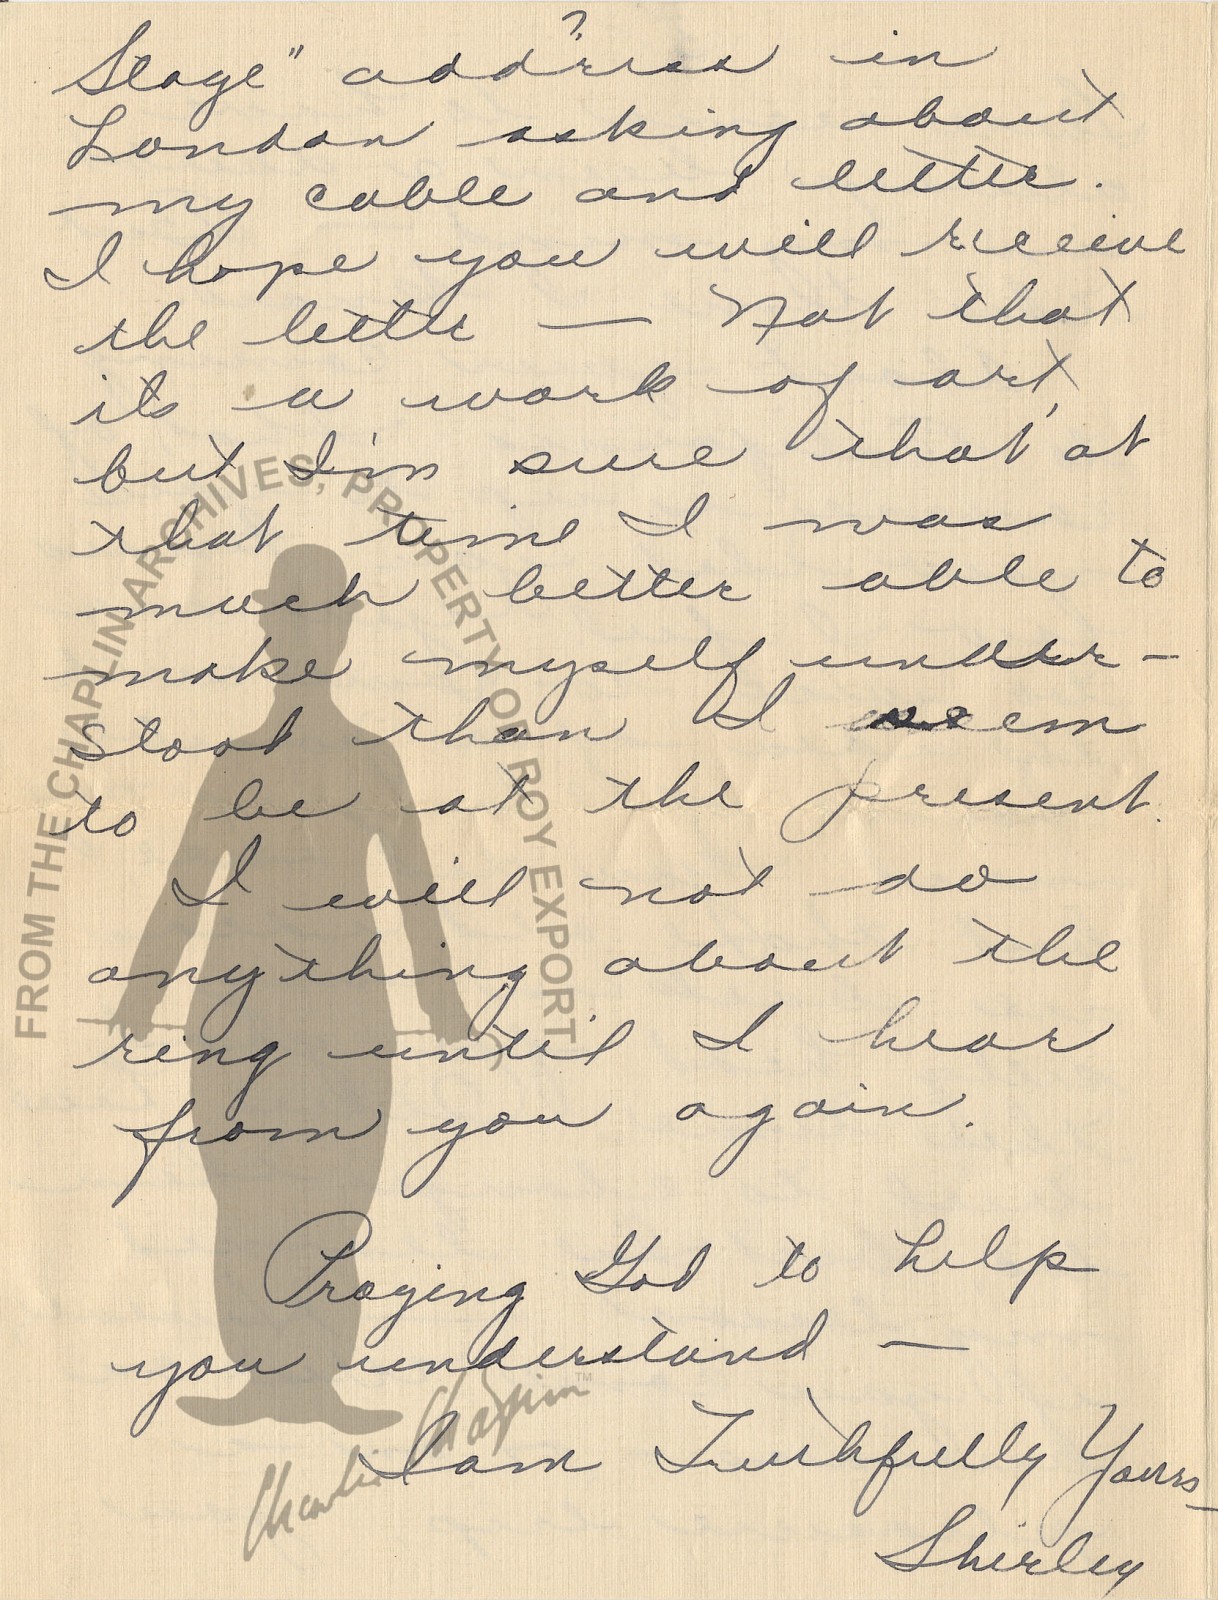 ?
Stage" address in
London asking about
my cable and letter.
I hope you will receive
the letter — Not that
its a work of art,
but I'm sure that at
that time I was
much better able to
make myself under-
stood than I seem
to be at the present.
I will not do
anything about the
ring until I hear
from you again.
Praying God to help
you understand —
I am Faithfully Yours —
Shirley
FROM THE CHAPLIN ARCHIVES, PROPERTY OF ROY EXPORT
Charlie Chaplin™